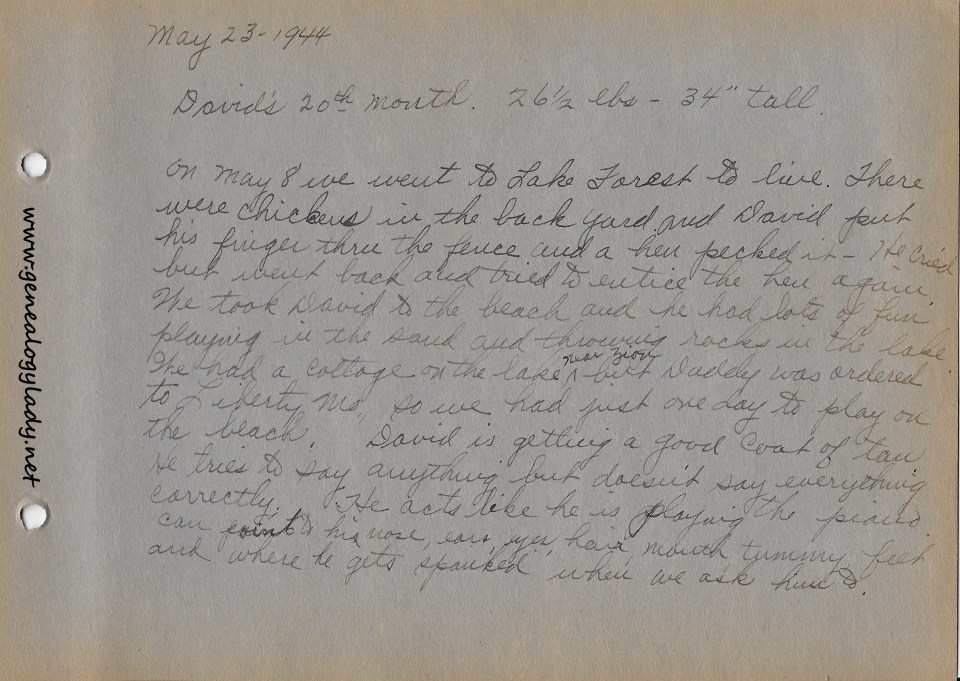 May 23-1944
David's 20th month. 26½ lbs - 34" tall.
On May 8 we went to Lake Forest to live. There
were chickens in the back yard and David put
his finger thru the fence and a hen pecked it - He cried
but went back and tried to entice the hen again.
We took David to the beach and he had lots of fun
playing in the sand and throwing rocks in the lake.
We had a cottage on the lake near Zion - but Daddy was ordered
to Liberty, Mo., so we had just one day to play on
the beach. David is getting a good coat of tan.
He tries to say anything but doesn't say everything
correctly. He acts like he is playing the piano
can point to his nose, ears, eyes, hair, mouth tummy feet
and where he gets spanked when we ask him to.
www.genealogylady.net